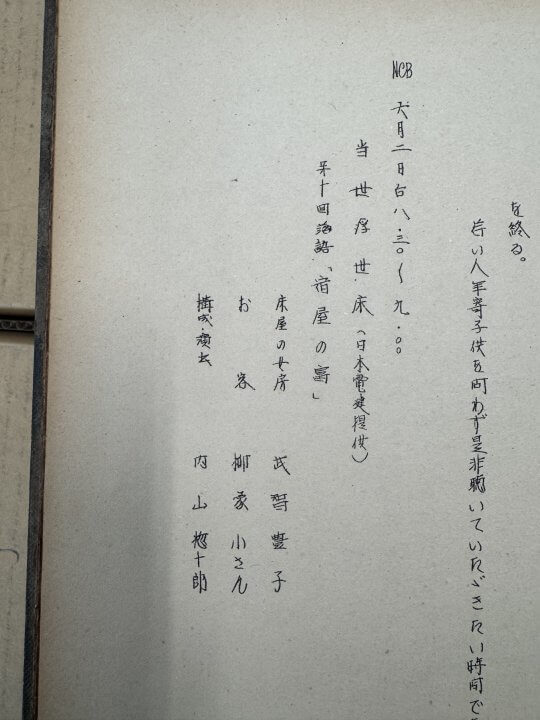 を終る。
若い人年寄子供を問わず是非聴いていたゞきたい時間で
NCB 六月二日后八・三〇〜九・〇〇
当世浮世床（日本電建提供）
第十回落語「宿屋の富」
床屋の女房 武智豊子
お客 柳家小さん
構成・演出 内山惣十郎